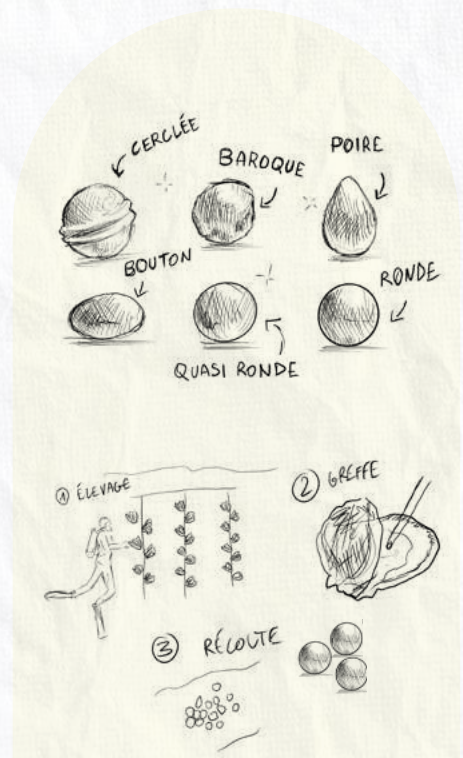 CERCLÉE
BAROQUE
POIRE
BOUTON
QUASI RONDE
RONDE
① ÉLEVAGE
② GREFFE
③ RÉCOLTE